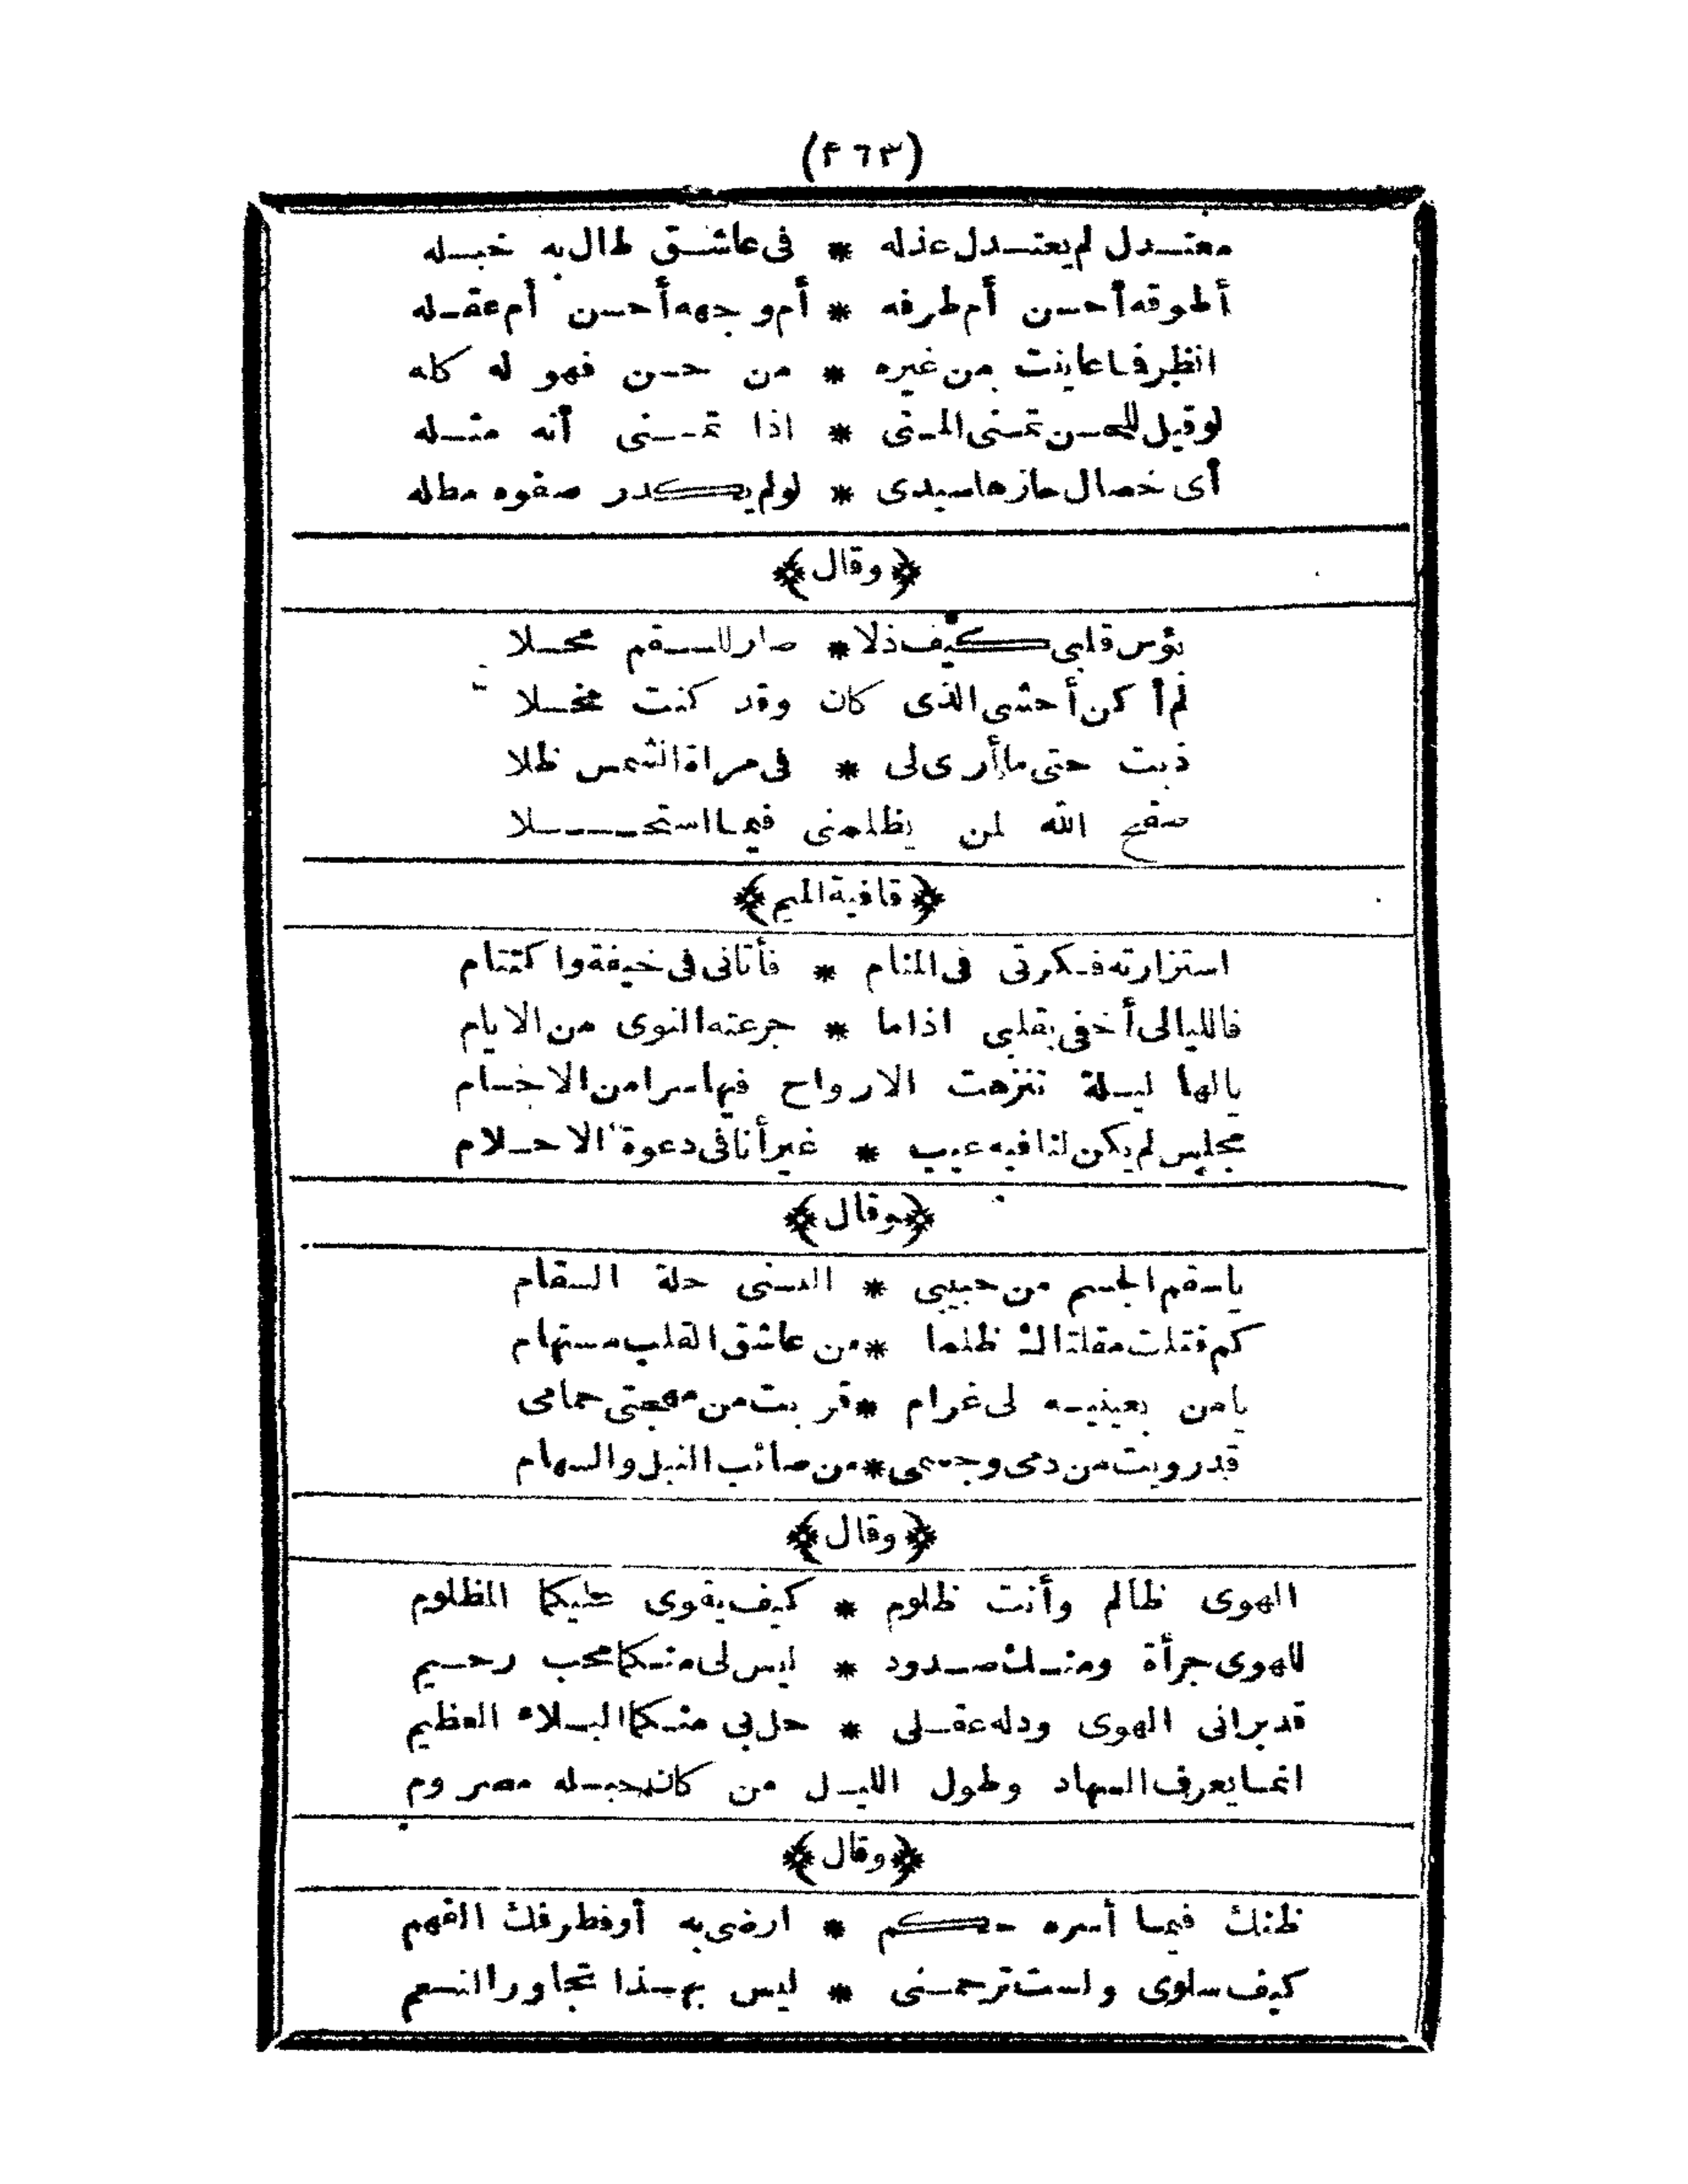 (٤٦٣)
معتدل لم يعتدل عذله * فى عاشق طال به خبله
أطوقه أحسن أم طرفه * أم وجهه أحسن أم عقله
انظر فما عاينت من غيره * من حسن فهو له كله
لو قيل للحسن تمنى المنى * اذا تمنى أنه مثله
أى خصال حازها سيدى * لو لم يكدر صفوه مطله
وقال
بؤس قلبى كيف ذلا * صار للسقم محلا
لم أكن أخشى الذى كان وقد كنت مخلا
ذبت حتى ما أرى لى * فى مراة الشمس ظلا
صفح الله لمن يظلمنى فيما استحلا
قافية الميم
استزارته فكرتى فى المنام * فأتانى فى خيفة واكتتام
فالليالى أخفى بقلبى اذا ما * جرعته النوى من الايام
يالها ليلة تنزهت الارواح فيها سرا من الاجسام
مجلس لم يكن لنا فيه عيب * غير أنا فى دعوة الاحلام
وقال
ياسقم الجسم من حبيبى * البسنى حلة السقام
كم قتلت مقلتاك ظلما * من عاشق القلب مستهام
يامن بعينيه لى غرام * قربت من مهجتى حمامى
قد رويت من دمى وجسمى * من صائب النبل والسهام
وقال
الهوى ظالم وأنت ظلوم * كيف يقوى عليكما المظلوم
للهوى جرأة ومنك صدود * ليس لى منكما محب رحيم
قد برانى الهوى ودله عقلى * حل بى منكما البلاء العظيم
انما يعرف السهاد وطول الليل من كان حبله مصروم
وقال
ظنك فيما أسره حكم * ارضى به أو فطرفك الفهم
كيف سلوى ولست ترحمنى * ليس بهذا تجاور النعم